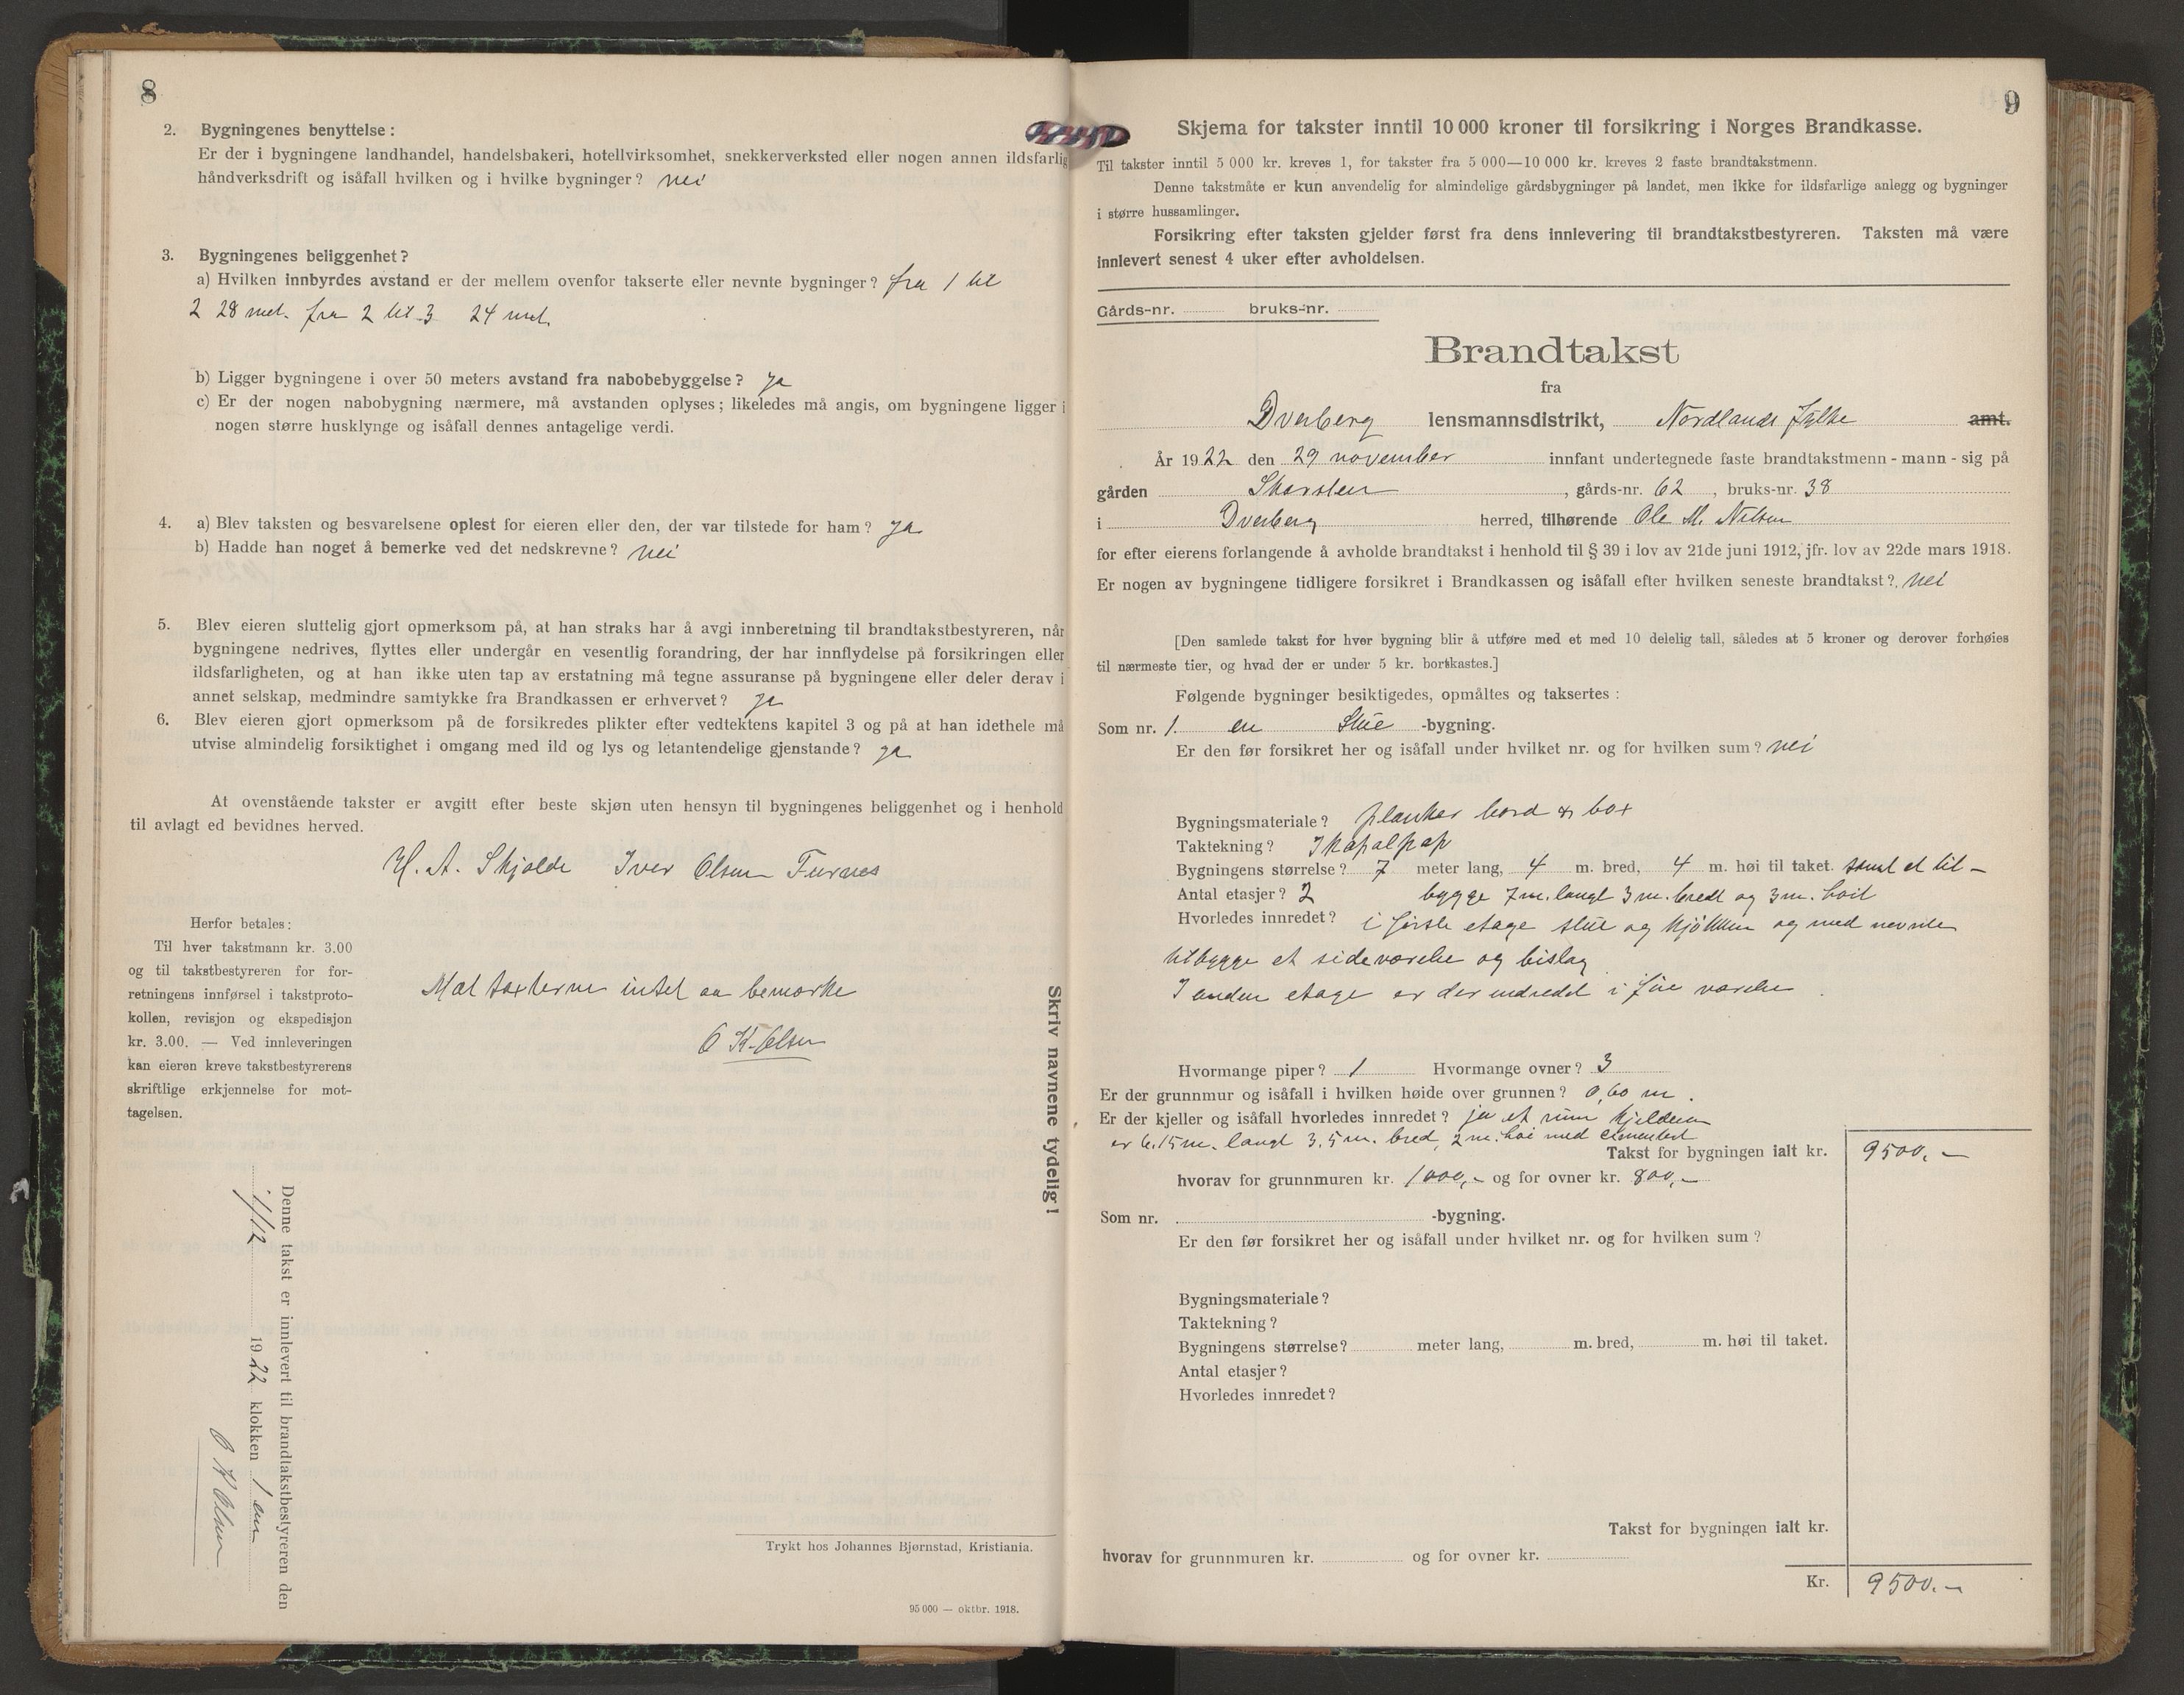 8
2. Bygningenes benyttelse:
Er der i bygningene landhandel, handelsbakeri, hotellvirksomhet, snekkerverksted eller nogen annen ildsfarlig
håndverksdrift og isåfall hvilken og i hvilke bygninger? nei
3. Bygningenes beliggenhet?
a) Hvilken innbyrdes avstand er der mellem ovenfor takserte eller nevnte bygninger? fra 1 til
2 28 met. fra 2 til 3 24 met.
b) Ligger bygningene i over 50 meters avstand fra nabobebyggelse? ja
c) Er der nogen nabobygning nærmere, må avstanden oplyses; likeledes må angis, om bygningene ligger i
nogen større husklynge og isåfall dennes antagelige verdi.
4. a) Blev taksten og besvarelsene oplest for eieren eller den, der var tilstede for ham? ja
b) Hadde han noget å bemerke ved det nedskrevne? nei
5. Blev eieren sluttelig gjort opmerksom på, at han straks har å avgi innberetning til brandtakstbestyreren, når
bygningene nedrives, flyttes eller undergår en vesentlig forandring, der har innflydelse på forsikringen eller
ildsfarligheten, og at han ikke uten tap av erstatning må tegne assuranse på bygningene eller deler derav i
annet selskap, medmindre samtykke fra Brandkassen er erhvervet? ja
6. Blev eieren gjort opmerksom på de forsikredes plikter efter vedtektens kapitel 3 og på at han idethele må
utvise almindelig forsiktighet i omgang med ild og lys og letantendelige gjenstande? ja
At ovenstående takster er avgitt efter beste skjøn uten hensyn til bygningenes beliggenhet og i henhold
til avlagt ed bevidnes herved.
H. A. Skjolde Iver Olsen Furnes
Herfor betales:
Til hver takstmann kr. 3.00
og til takstbestyreren for for-
retningens innførsel i takstproto-
kollen, revisjon og ekspedisjon
kr. 3.00. — Ved innleveringen
kan eieren kreve takstbestyrerens
skriftlige erkjennelse for mot-
tagelsen.
Mot taxterne intet aa bemærke
O K. Olsen
Skriv navnene tydelig!
Denne takst er innlevert til brandtakstbestyreren den
1/12 1922 klokken 1 em
O K Olsen
Trykt hos Johannes Bjørnstad, Kristiania.
95 000 — oktbr. 1918.
9
Skjema for takster inntil 10 000 kroner til forsikring i Norges Brandkasse.
Til takster inntil 5 000 kr. kreves 1, for takster fra 5 000—10 000 kr. kreves 2 faste brandtakstmenn.
Denne takstmåte er kun anvendelig for almindelige gårdsbygninger på landet, men ikke for ildsfarlige anlegg og bygninger
i større hussamlinger.
Forsikring efter taksten gjelder først fra dens innlevering til brandtakstbestyreren. Taksten må være
innlevert senest 4 uker efter avholdelsen.
Gårds-nr. bruks-nr.
Brandtakst
fra
Dverberg lensmannsdistrikt, Nordlands Fylke amt.
År 1922 den 29 november innfant undertegnede faste brandtakstmenn - mann - sig på
gården Skarsten, gårds-nr. 62, bruks-nr. 38
i Dverberg herred, tilhørende Ole M. Nilsen
for efter eierens forlangende å avholde brandtakst i henhold til § 39 i lov av 21de juni 1912, jfr. lov av 22de mars 1918.
Er nogen av bygningene tidligere forsikret i Brandkassen og isåfall efter hvilken seneste brandtakst? nei
[Den samlede takst for hver bygning blir å utføre med et med 10 delelig tall, således at 5 kroner og derover forhøies
til nærmeste tier, og hvad der er under 5 kr. bortkastes.]
Følgende bygninger besiktigedes, opmåltes og taksertes:
Som nr. 1. en Stue -bygning.
Er den før forsikret her og isåfall under hvilket nr. og for hvilken sum? nei
Bygningsmateriale? planker bord &
Taktekning?
Bygningens størrelse? 7 meter lang, 4 m. bred, 4 m. høi til taket. samt et til-
Antal etasjer? 2 bygge 7 m. langt 3 m. bredt og 3 m. hoit
Hvorledes innredet? i første etage stue og kjøkken og med nevnte
tilbygge et sideværelse og bislag
I anden etage er der indredet i fire værelse.
Hvormange piper? 1 Hvormange ovner? 3
Er der grunnmur og isåfall i hvilken høide over grunnen? 0,60 m.
Er der kjeller og isåfall hvorledes innredet? ja et rum kjelderen
er 6.15 m. langt 3.5 m. bred, 2 m. hoi med
Takst for bygningen ialt kr. 9500.-
hvorav for grunnmuren kr. 1000,- og for ovner kr. 800,-
Som nr. -bygning.
Er den før forsikret her og isåfall under hvilket nr. og for hvilken sum?
Bygningsmateriale?
Taktekning?
Bygningens størrelse? meter lang, m. bred, m. høi til taket.
Antal etasjer?
Hvorledes innredet?
Takst for bygningen ialt kr.
hvorav for grunnmuren kr. og for ovner kr.
Kr. 9500.-